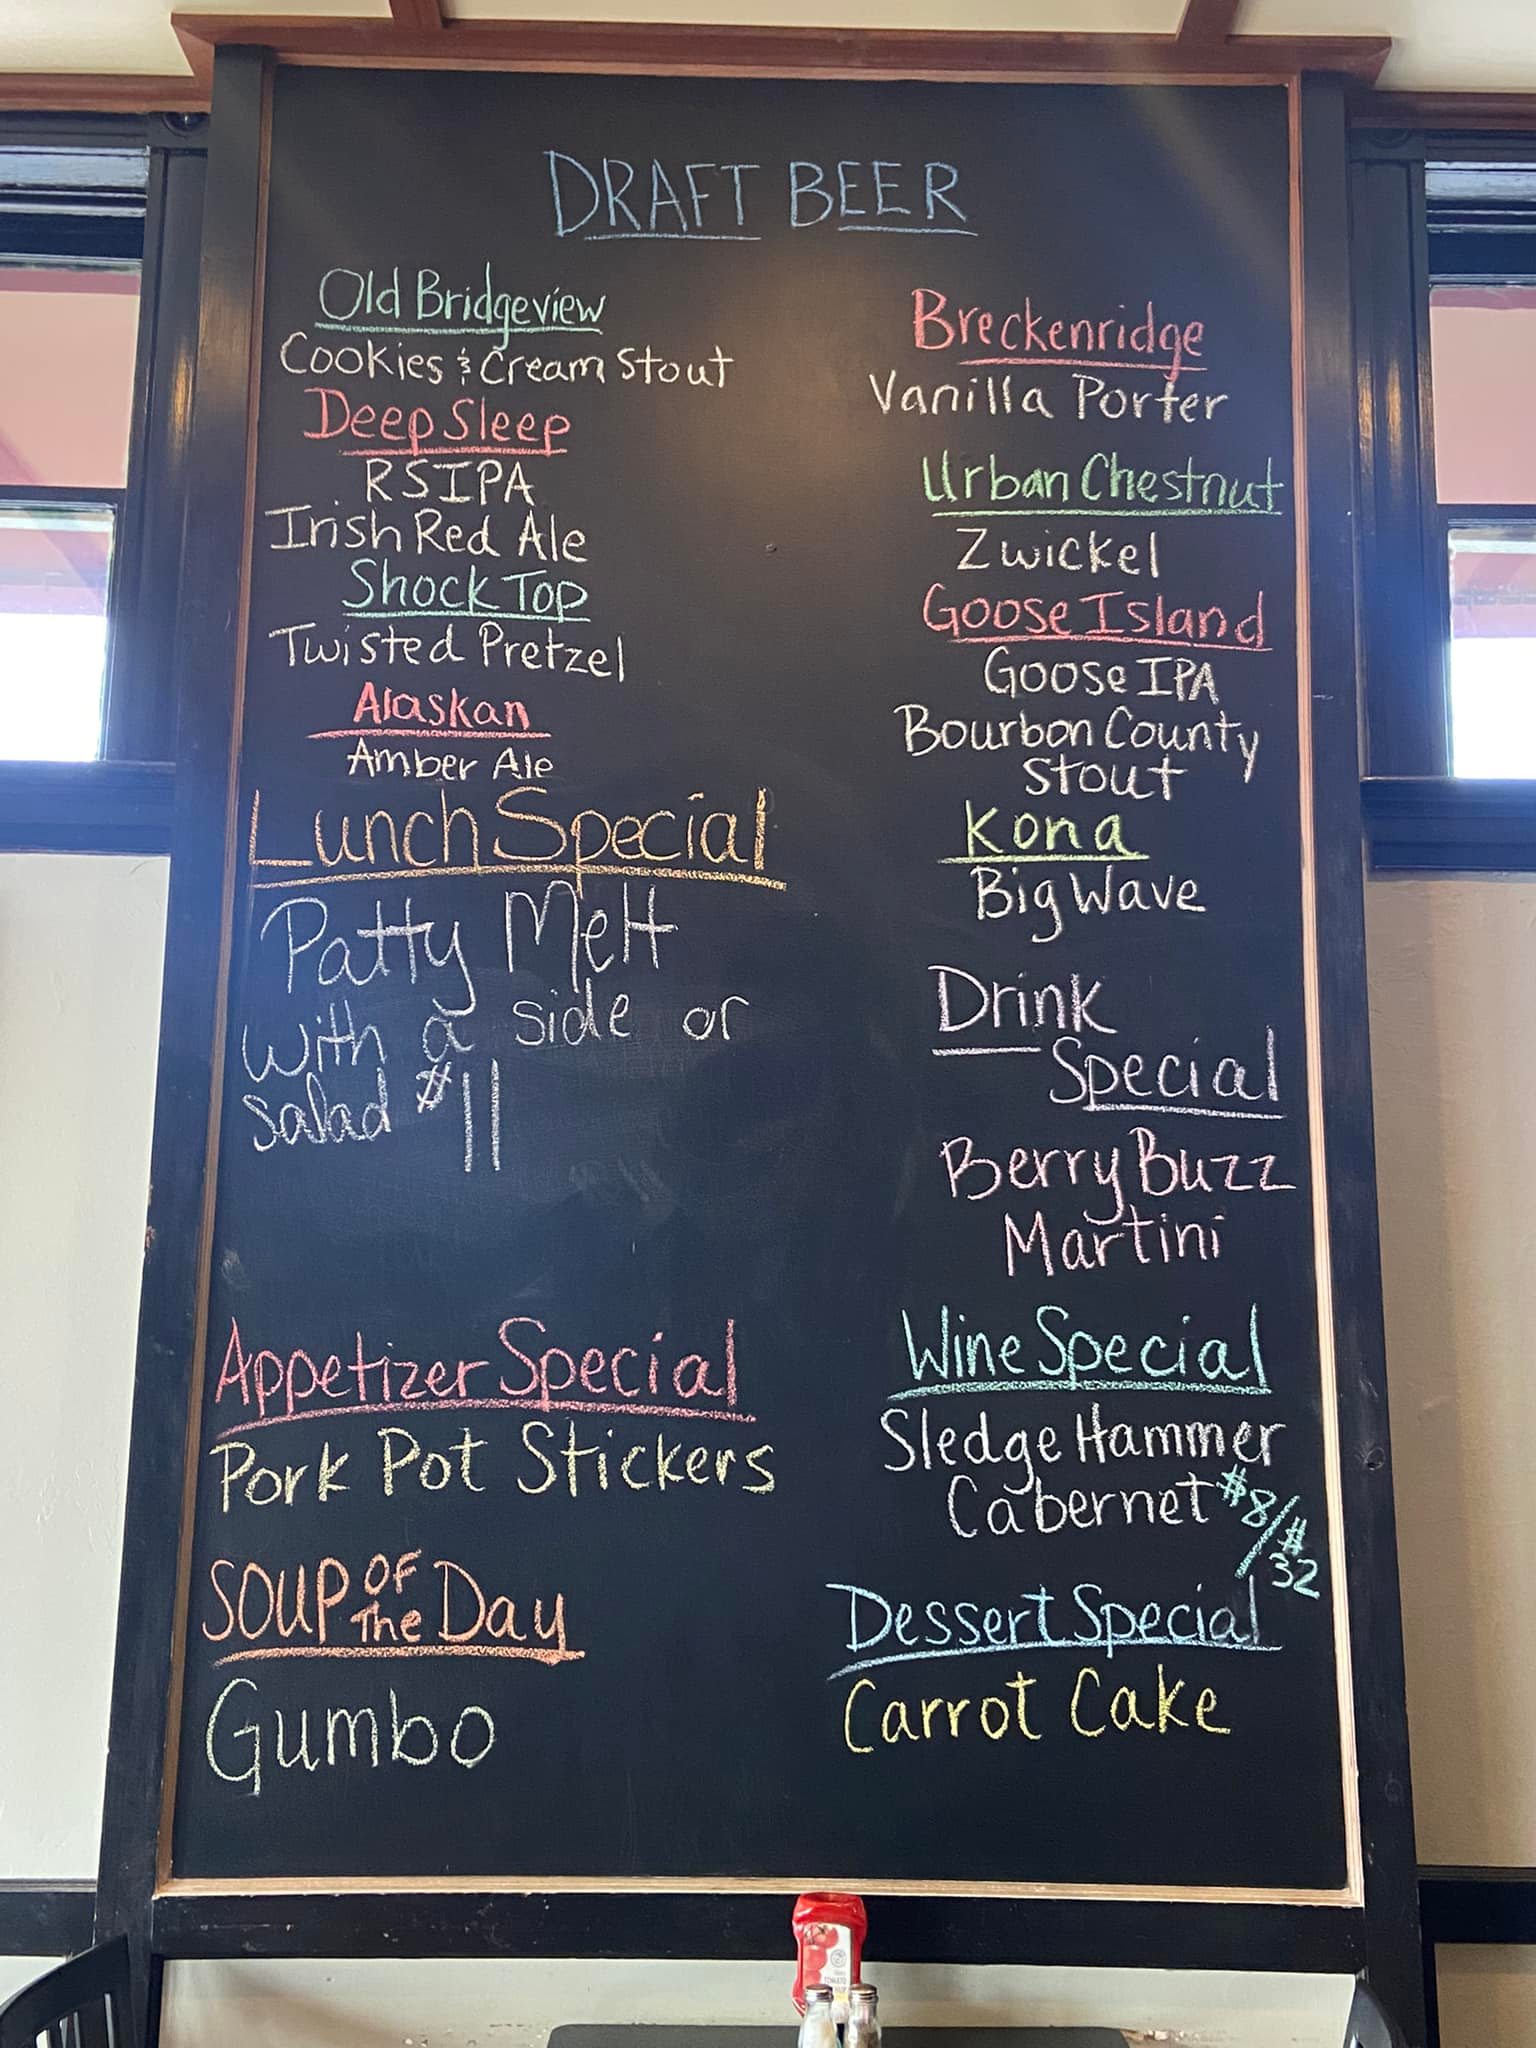 DRAFT BEER
Old Bridgeview
Cookies & Cream Stout
Deep Sleep
RSIPA
Irish Red Ale
Shock Top
Twisted Pretzel
Alaskan
Amber Ale
Lunch Special
Patty Melt
with a side or
salad $11
Appetizer Special
Pork Pot Stickers
SOUP OF The Day
Gumbo
Breckenridge
Vanilla Porter
Urban Chestnut
Zwickel
Goose Island
Goose IPA
Bourbon County
Stout
Kona
Big Wave
Drink
Special
Berry Buzz
Martini
Wine Special
Sledge Hammer
Cabernet $8/$32
Dessert Special
Carrot Cake
TOMATO